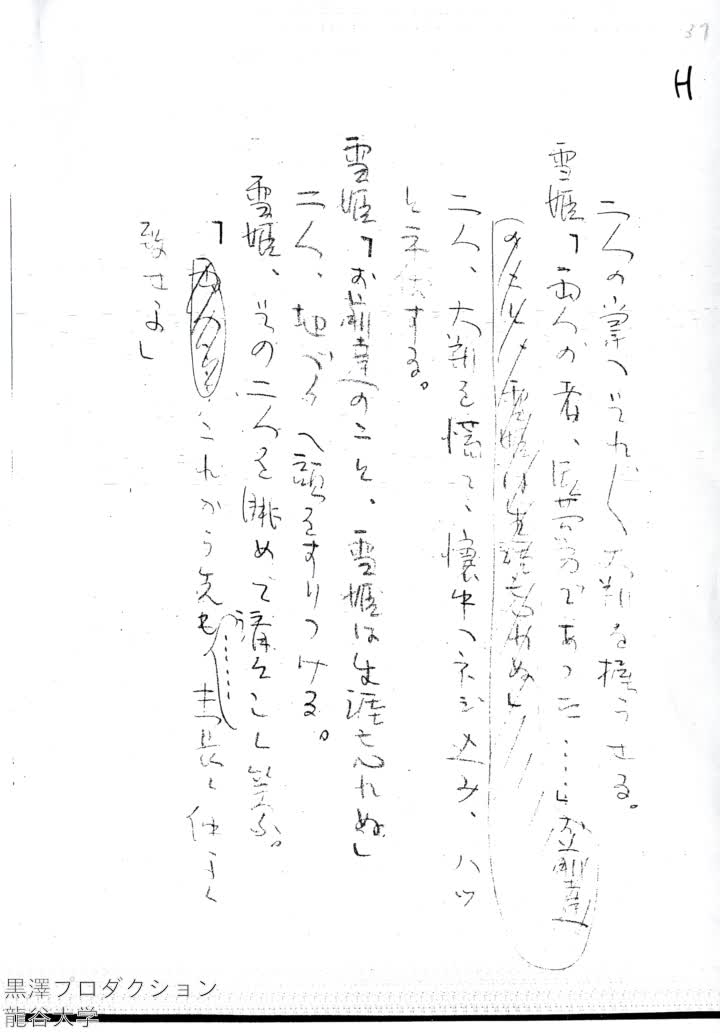 37
H
二人の掌へそれ〲大判を握らせる。
雪姫「両人の者、大
であった……」お前達
のこと、雪姫は生涯忘れぬ」
二人、大判を慌てゝ懐中へネジ込み、ハッ
と平伏する。
雪姫「お前達のこと、雪姫は生涯忘れぬ」
二人、地べたへ額をすりつける。
雪姫、その二人を眺めてにこ〳〵笑ふ。
「これから先も……末長く仲よく
致せよ」
黒澤プロダクション
龍谷大学